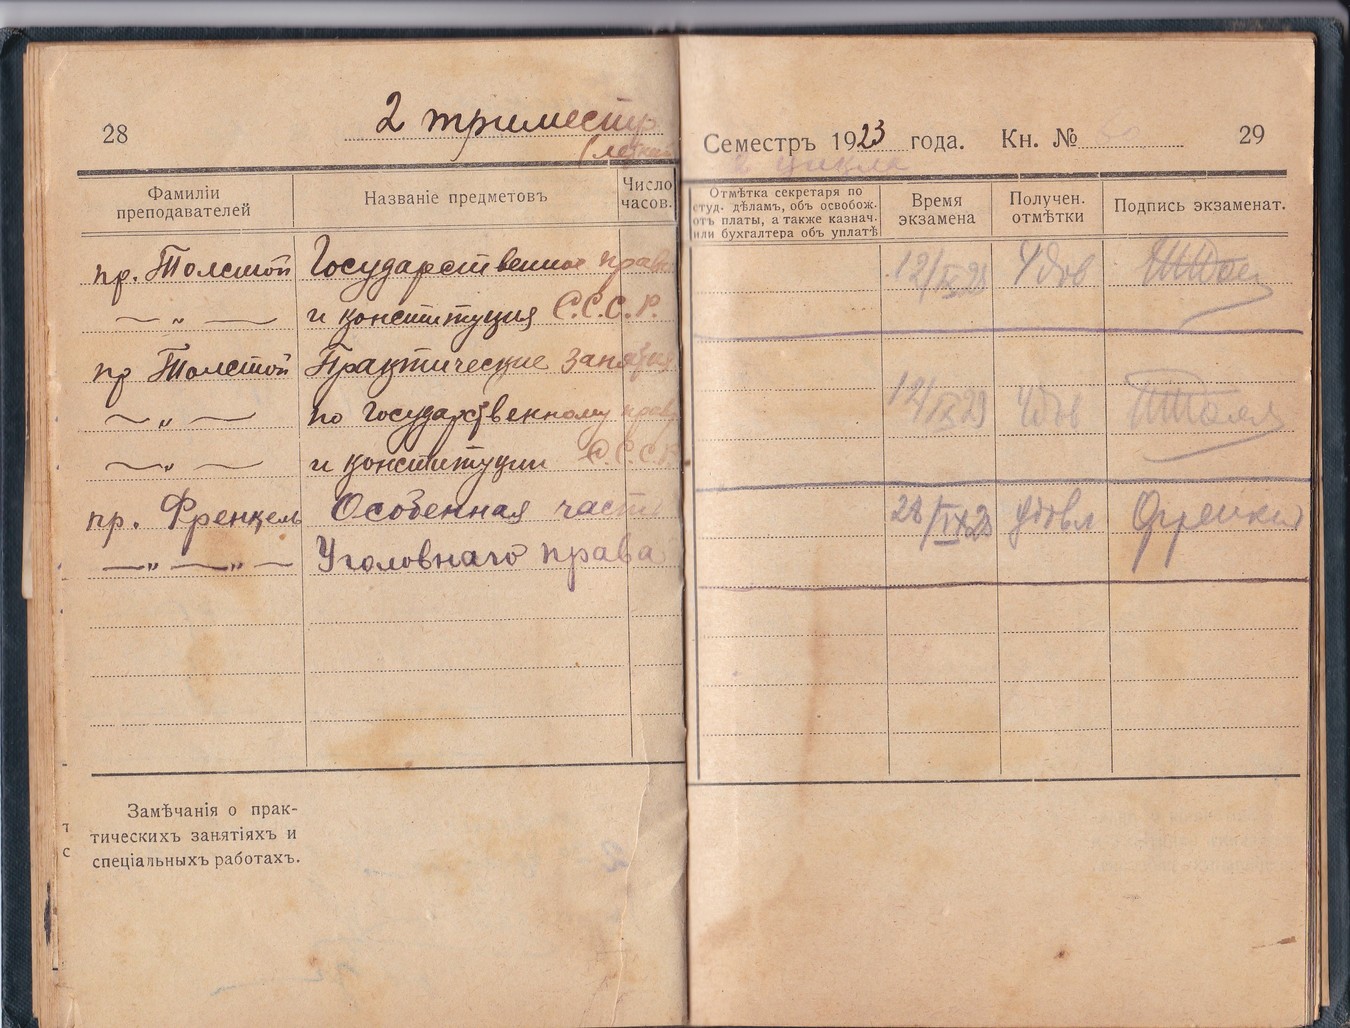 28
2 триместр
Фамиліи преподавателей
Названіе предметовъ
Число часовъ.
пр. Толстой Государственное право
— " — и конституция С.С.С.Р.
пр Толстой Практические занятия
— " — по Государственному праву
— " — и конституции С.С.С.Р.
пр. Френкель Особенная часть
— " — " — Уголовнаго права
Замѣчанія о прак-
тическихъ занятіяхъ и
спеціальныхъ работахъ.
Семестръ 1923 года. Кн. №
29
2 цикла
Отмѣтка секретаря по
студ. дѣламъ, объ освобож.
отъ платы, а также казнач.
или бухгалтера объ уплатѣ
Время экзамена
Получен. отмѣтки
Подпись экзаменат.
12/IX23 Удов
12/IX23 Удов
28/IX23 удовл